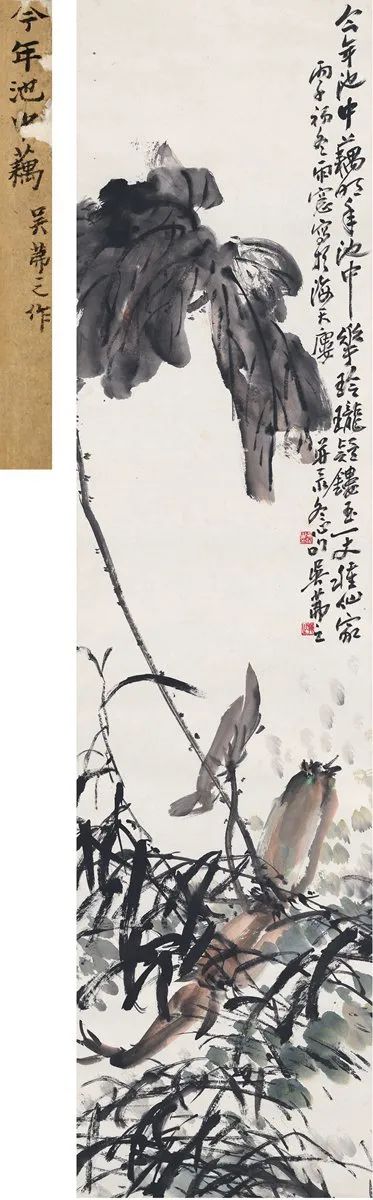 今年池中藕 吴茀之作
今年池中藕明年池中華玲瓏疑鏤玉一丈種仙家
丙子初冬雨窓寫於海天廔
吳茀之